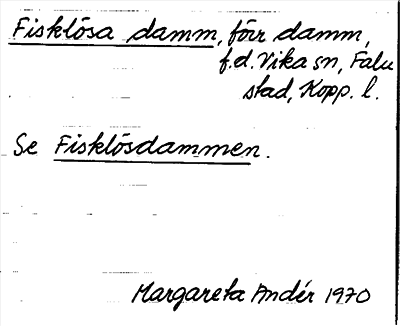 Fisklösa damm, förr damm,
f.d. Vika sn, Falu
stad, Kopp. l.
Se Fisklösdammen.
Margareta Andér 1970